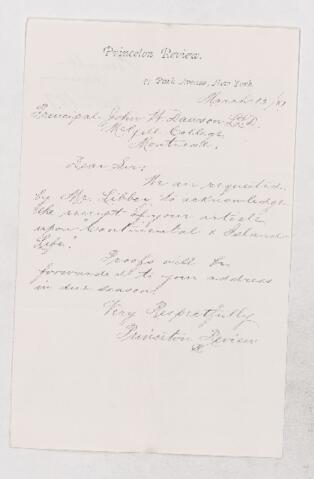 Princeton Review.
Park Avenue, New York.
March 12/81
Principal John W. Dawson LL.D.
McGill College
Montreal.
Dear Sir:
We are requested
by Mr. Libbey to acknowledge
the receipt of your article
upon "Continental & Island
Life."
Proofs will be
forwarded to your address
in due season.
Very Respectfully
Princeton Review